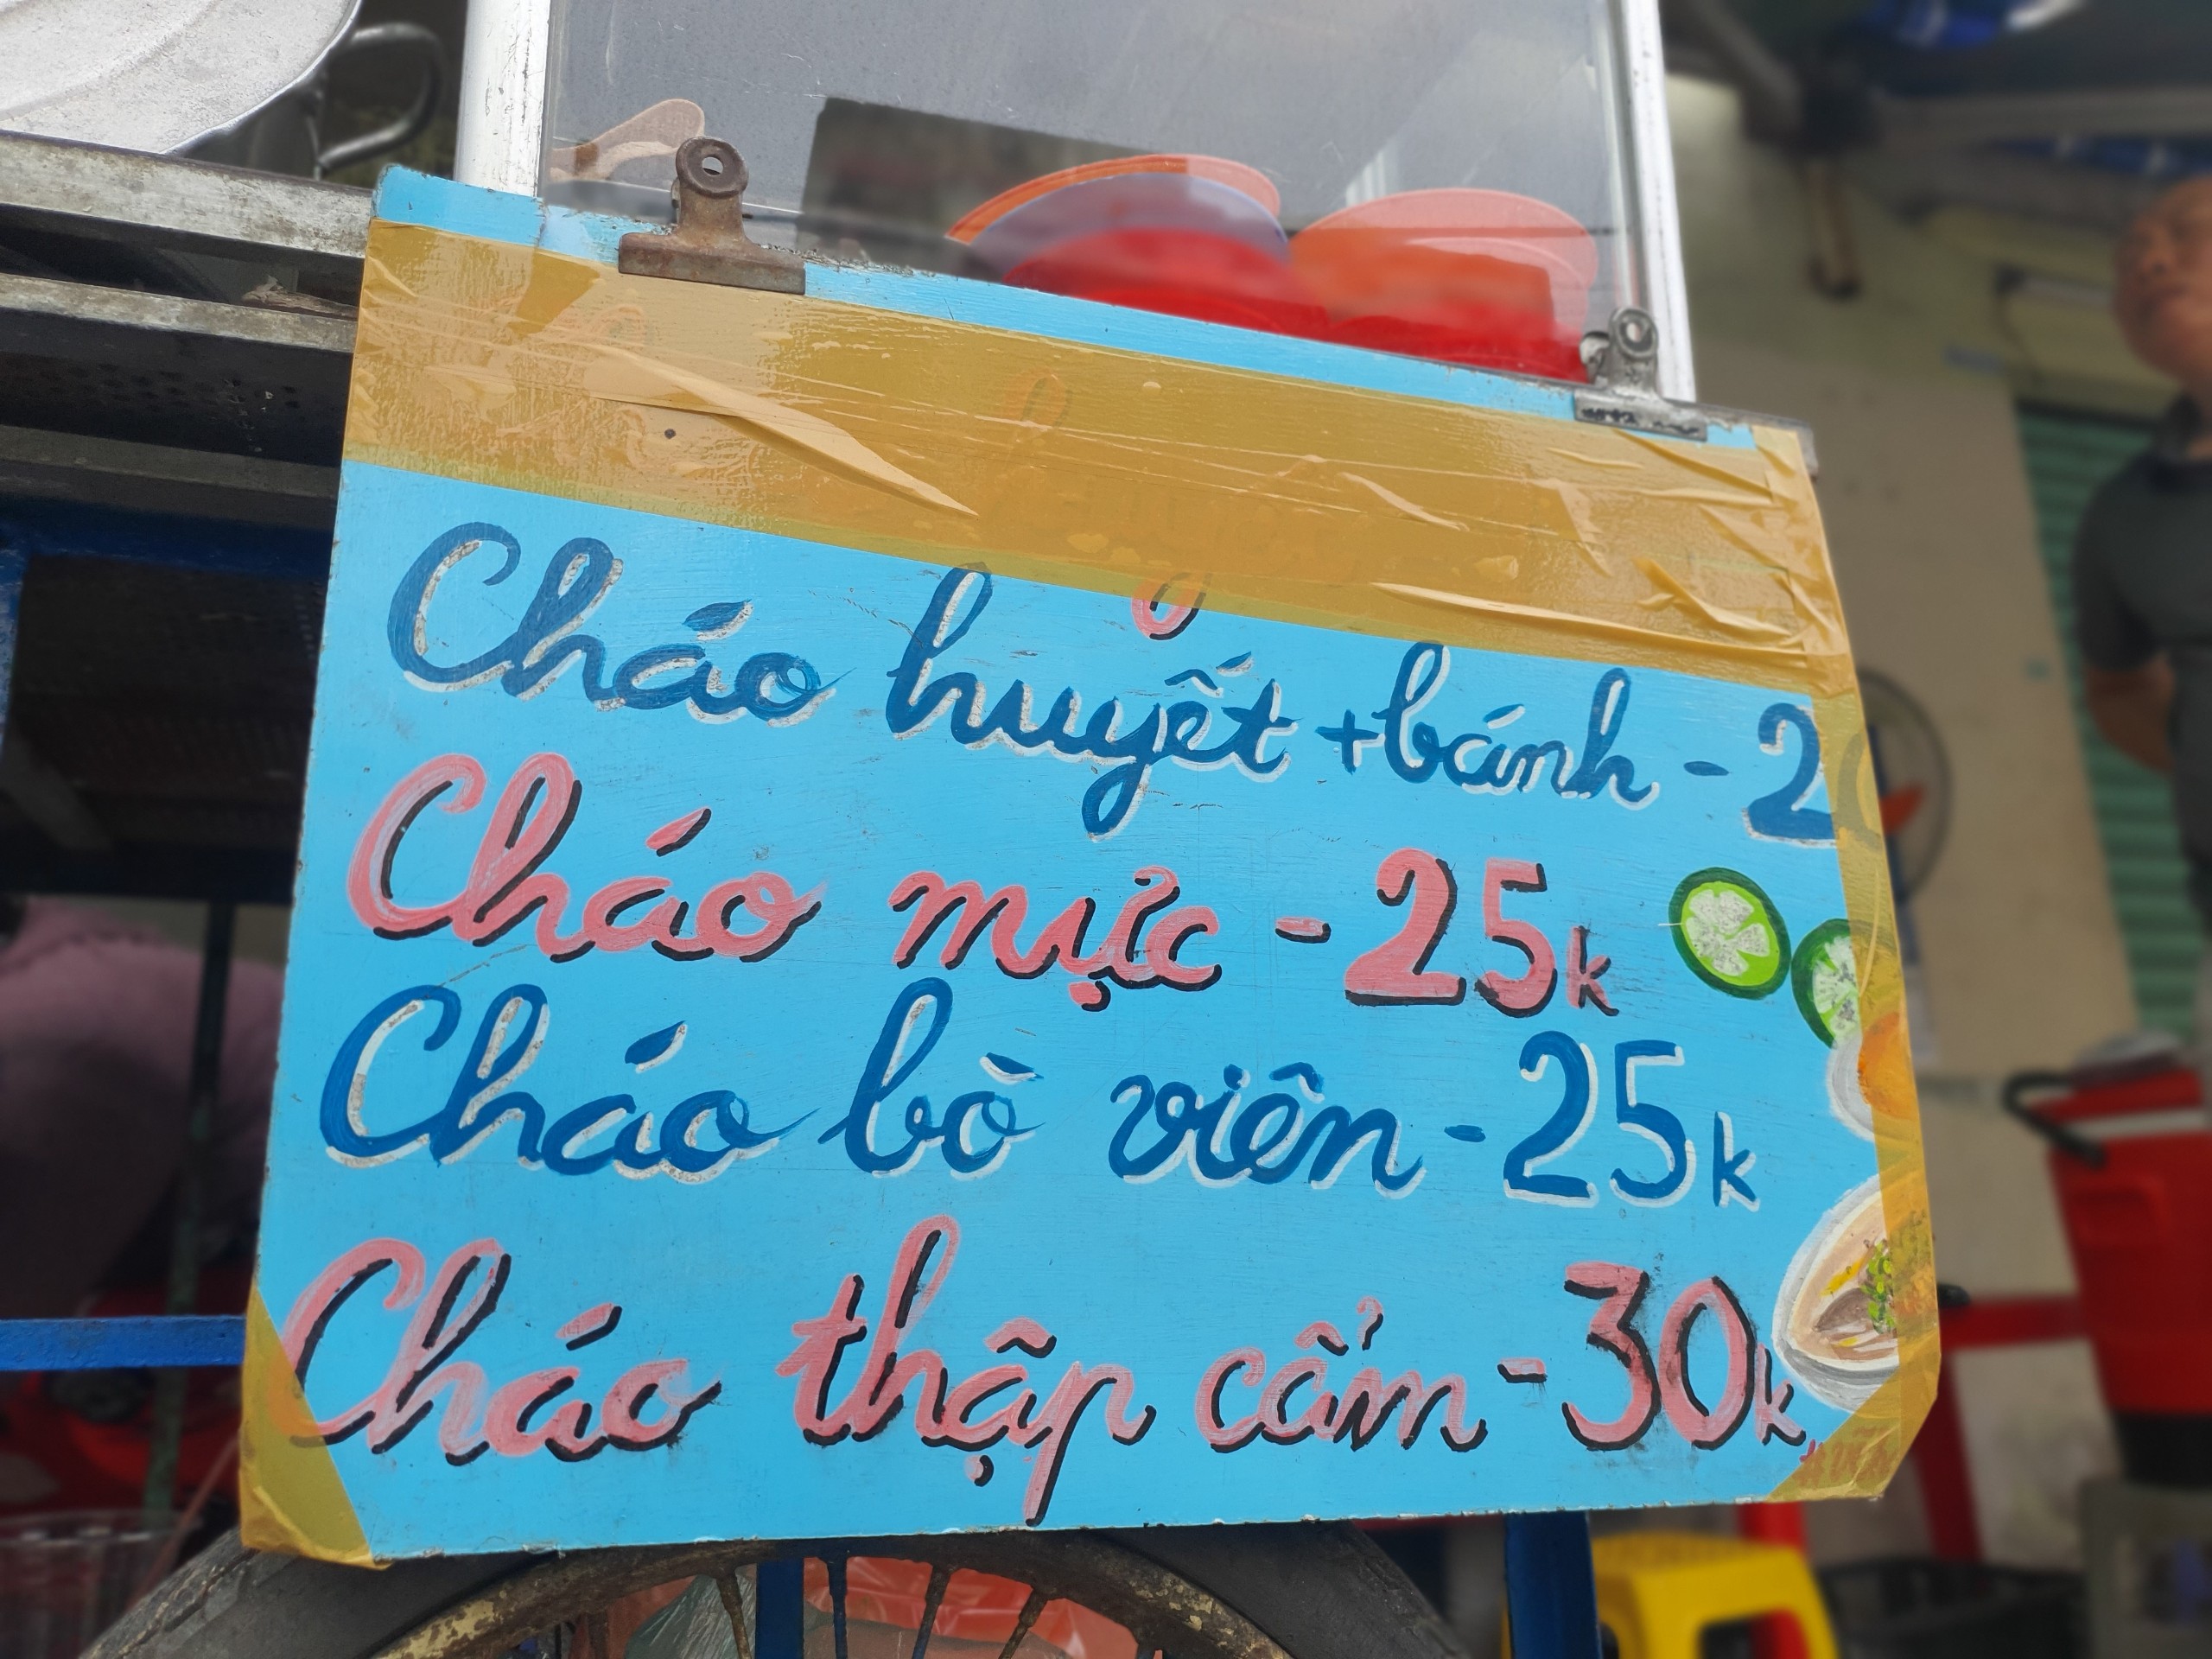 Cháo huyết + bánh - 20
Cháo mực - 25k
Cháo bò viên - 25k
Cháo thập cẩm - 30k